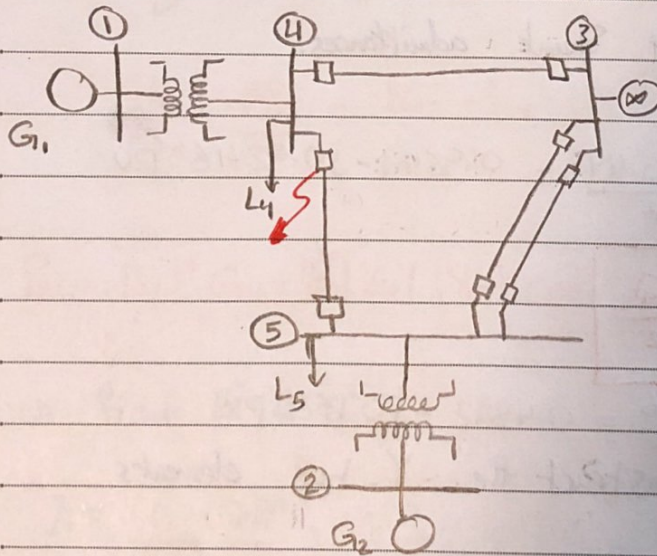 1
4
3
∞
G₁
L4
5
L5
2
G₂